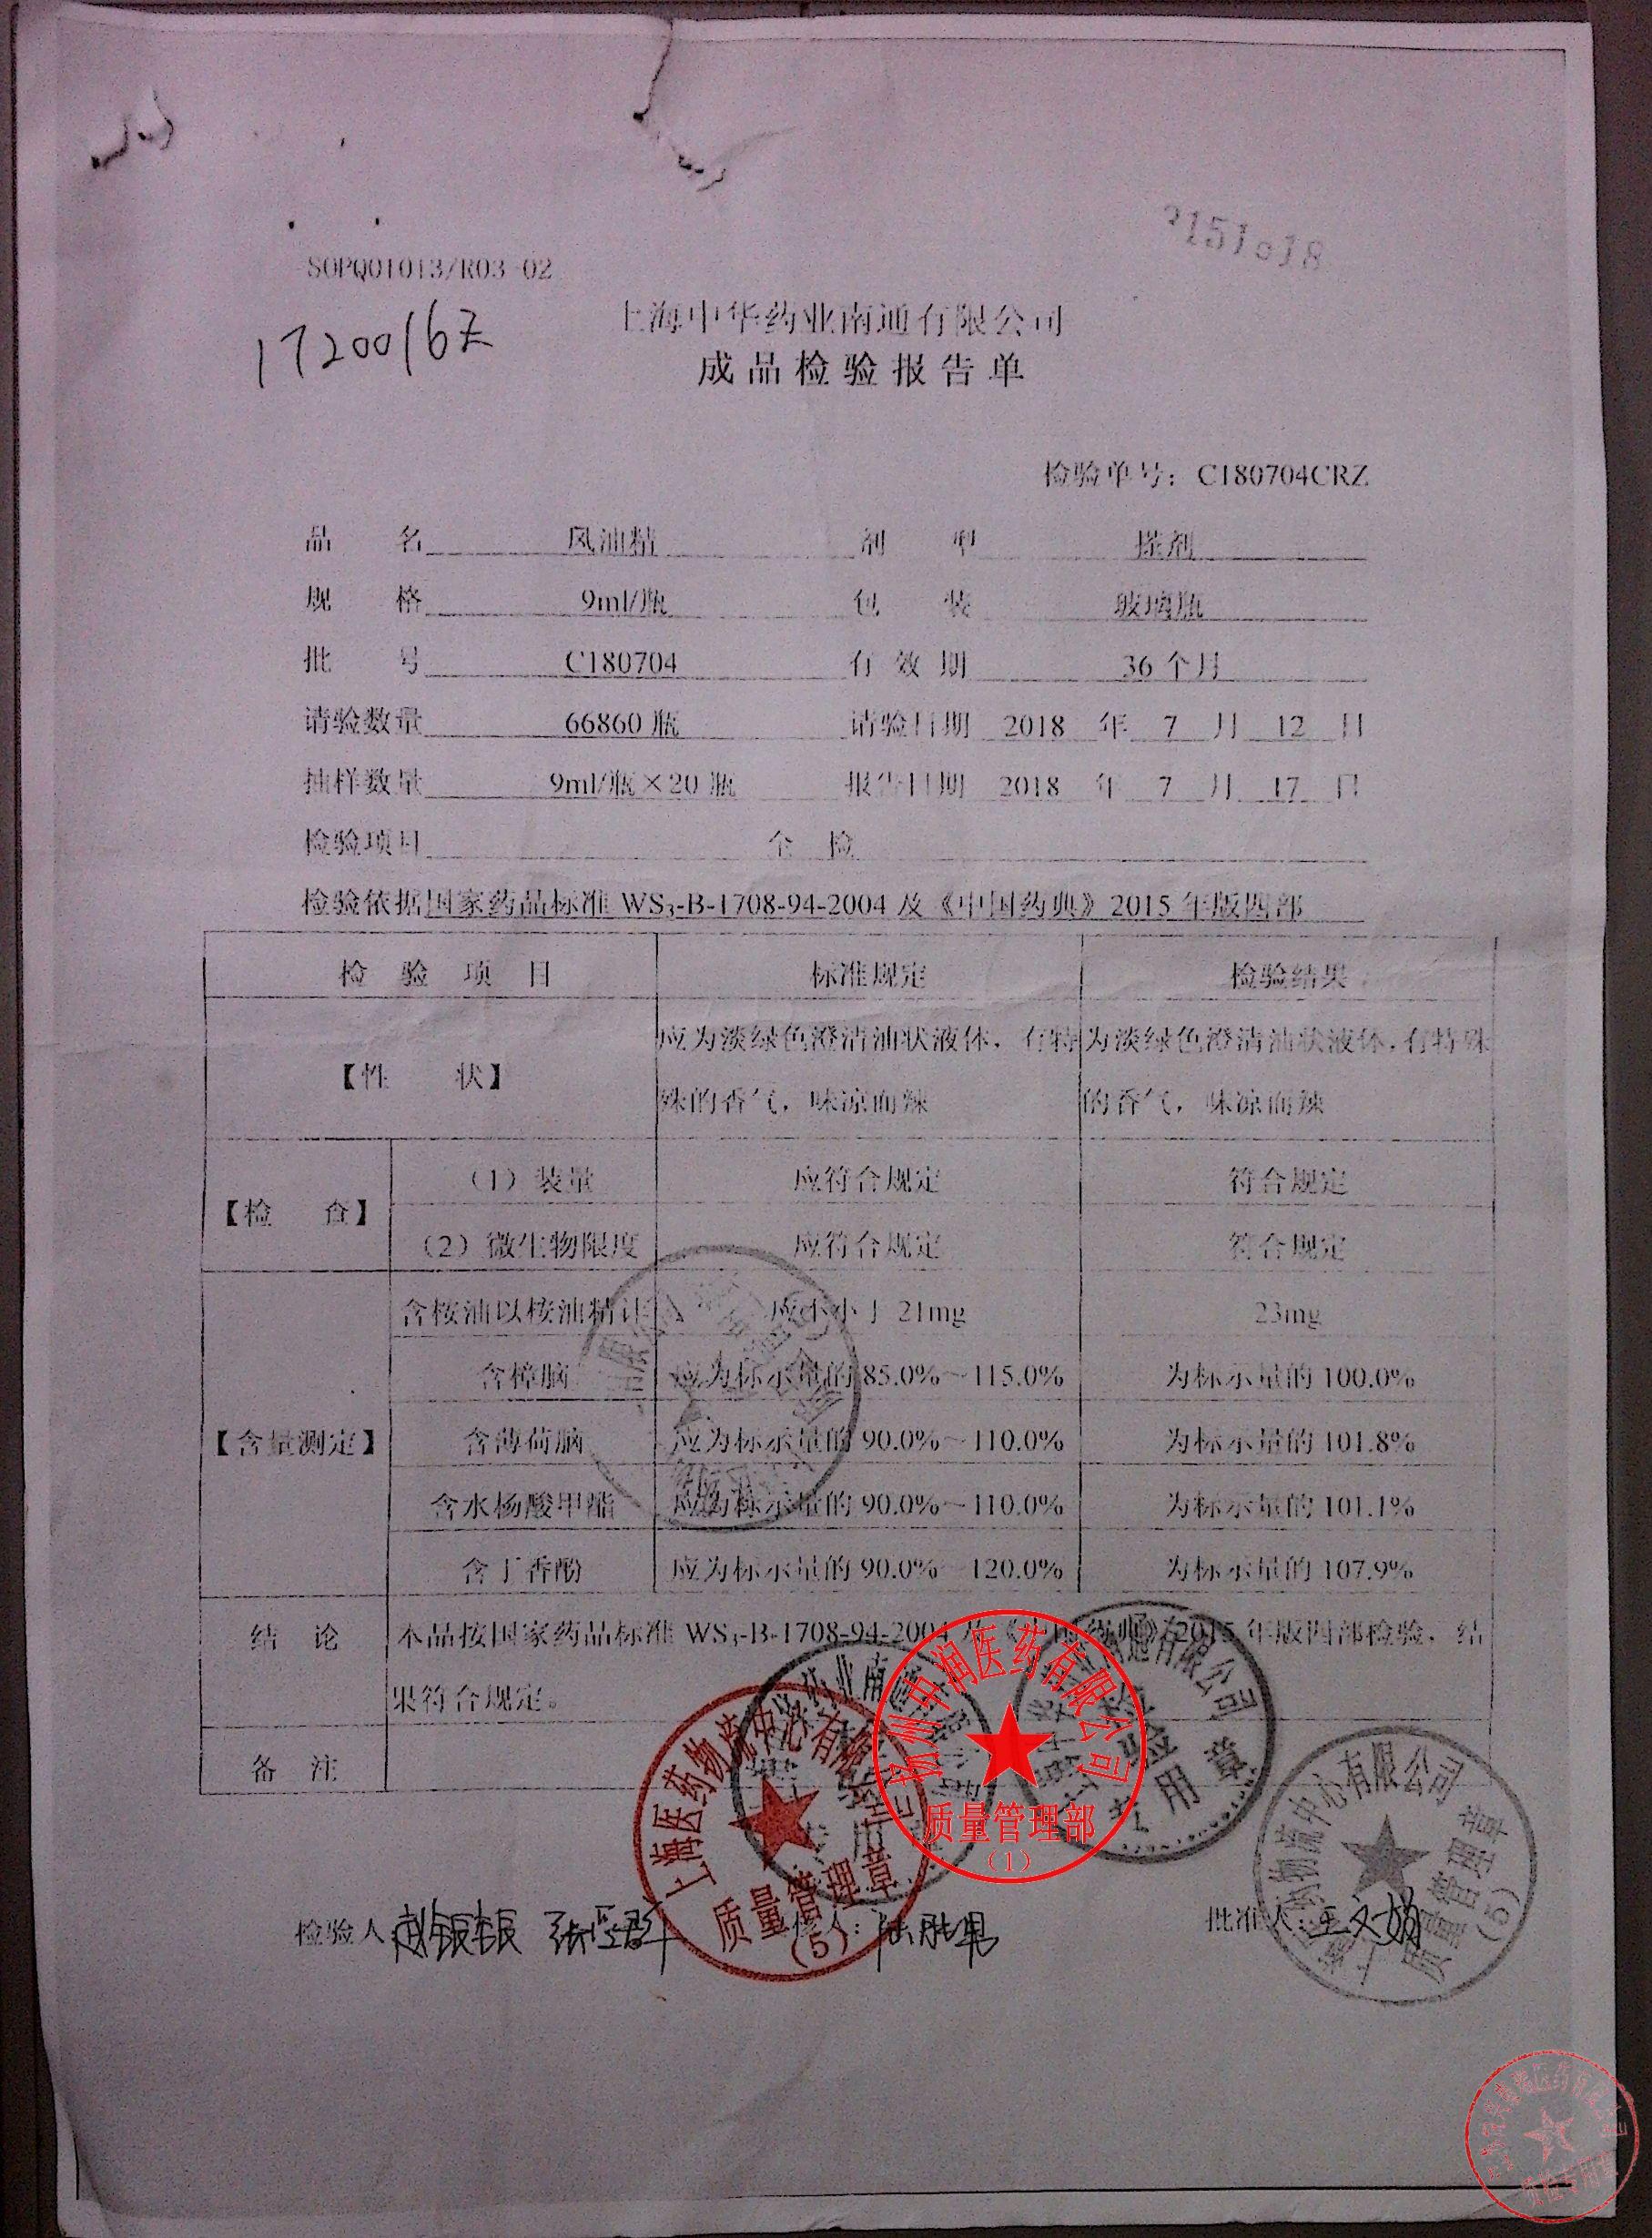 151018
SOPQ01013/R03-02
1720016Z
上海中华药业南通有限公司
成品检验报告单
检验单号：C180704CRZ
品 名 风油精 剂 型 搽剂
规 格 9ml/瓶 包 装 玻璃瓶
批 号 C180704 有 效 期 36 个月
请验数量 66860 瓶 请验日期 2018 年 7 月 12 日
抽样数量 9ml/瓶×20 瓶 报告日期 2018 年 7 月 17 日
检验项目 全 检
检验依据国家药品标准 WS₃-B-1708-94-2004 及《中国药典》2015 年版四部
检 验 项 目 标准规定 检验结果
【性 状】 应为淡绿色澄清油状液体，有特殊的香气，味凉而辣 为淡绿色澄清油状液体，有特殊的香气，味凉而辣
【检 查】 （1）装量 应符合规定 符合规定
（2）微生物限度 应符合规定 符合规定
【含量测定】 含桉油以桉油精计 应不小于 21mg 23mg
含樟脑 应为标示量的 85.0%～115.0% 为标示量的 100.0%
含薄荷脑 应为标示量的 90.0%～110.0% 为标示量的 101.8%
含水杨酸甲酯 应为标示量的 90.0%～110.0% 为标示量的 101.1%
含丁香酚 应为标示量的 90.0%～120.0% 为标示量的 107.9%
结 论 本品按国家药品标准 WS₃-B-1708-94-2004 及《中国药典》2015 年版四部检验，结
果符合规定。
备 注
上海医药物流中心有限公司
质量管理章
（5）
扬州中润医药有限公司
质量管理部
（1）
检验
专用章
上海医药物流中心有限公司
质量管理章
（5）
检验人 赵银根 核人： 批准人：王文娟